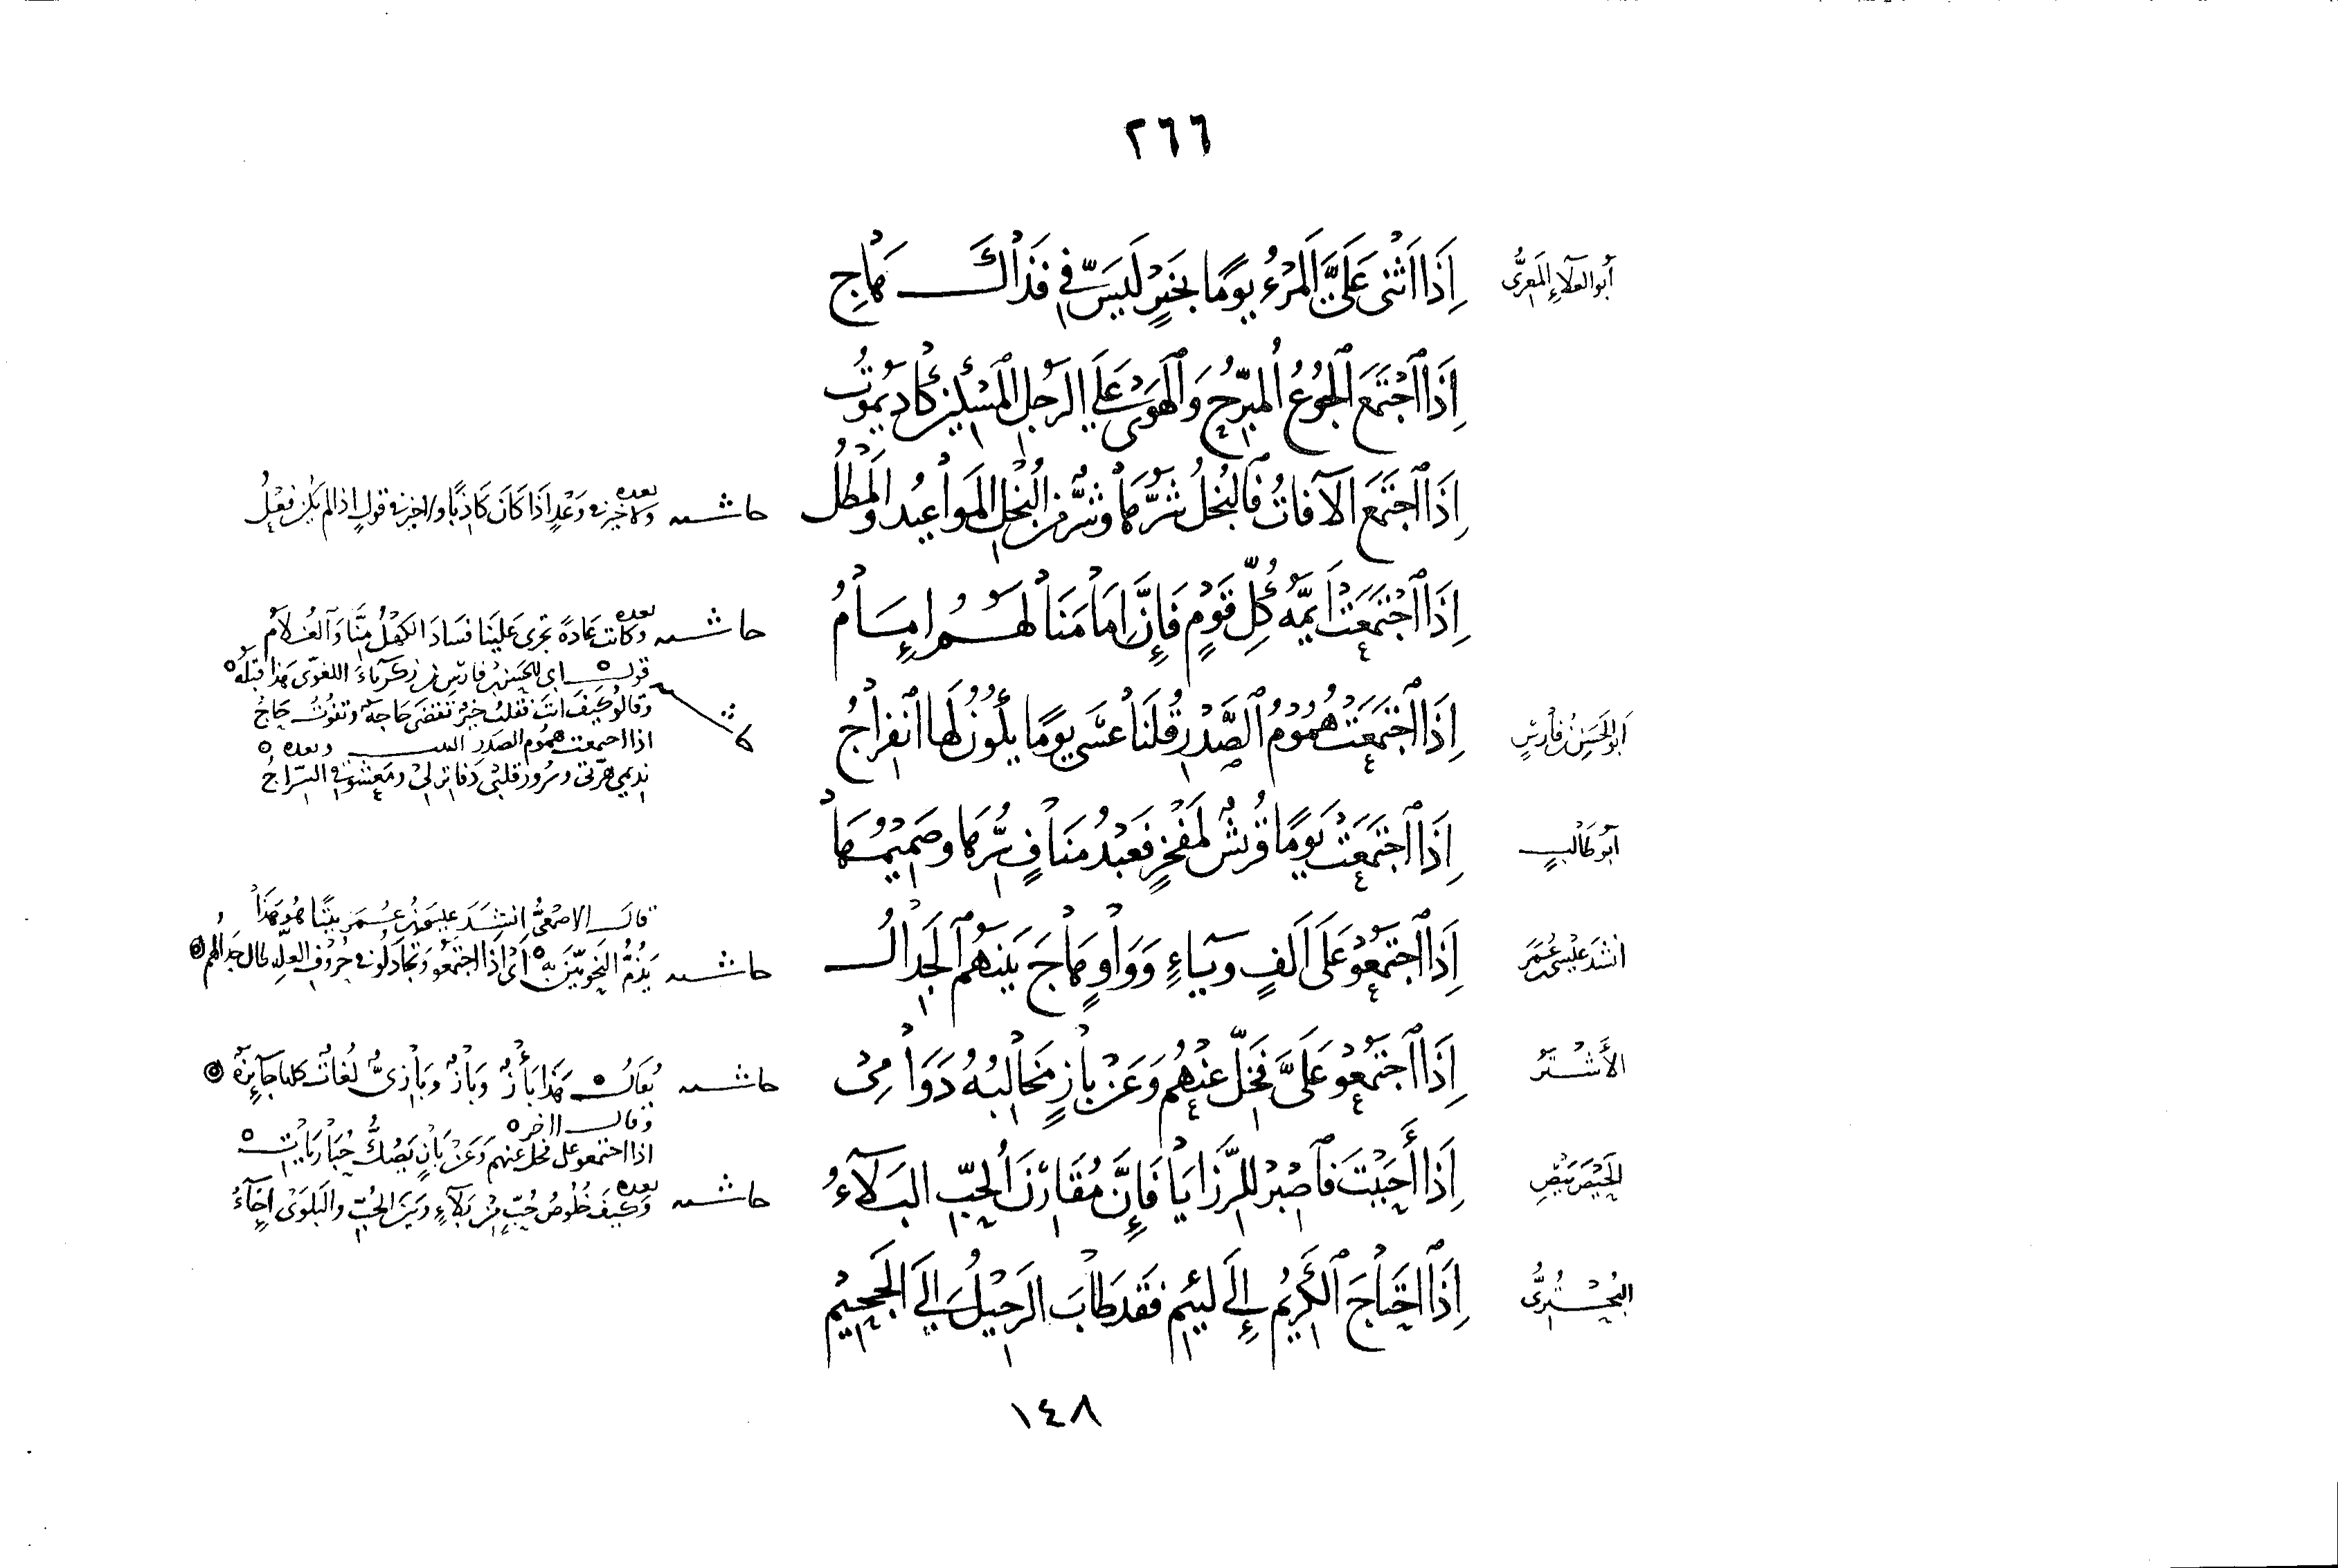 ٢٦٦
أبو العلاء المعري
إِذَا اثْنى عَلَيَّ الْمَرْءُ يَومًا بخَيرٍ لَيسَ فيَّ فذَاكَ هَاجِ
إِذَا اجْتَمَعَ الجُوعُ المبرِّحُ وَالهَوَى عَلَى الرَجلِ المسْكِينِ كَادَ يَموُتُ
إِذَا اجْتَمَعَ الآفاتُ فَالبُخلُ شَرُّهَا وشَرٌّ مِنَ البُخْلِ المَوَاعِيدُ والمَطْلُ
حاشية بعده ولا خيرَ في وَعْدٍ اذَا كَانَ كَاذِبًا ولا خير في قولٍ اذا لم يَكُن فعْلُ
إِذَا اجْتَمَعَتْ أَيمَّةُ كُلِّ قَوْمٍ فَإِنَّ إِمَامَنَا لهُمُ إِمَامُ
حاشية بعده وكانت عادةً تجرى عَلينَا فسَادَ الكَهْلُ مِنَّا وَالغُلَامُ
أبو الحَسَن بن فارسٍ
إِذَا اجْتَمَعَتْ هُمُومُ الصَّدْرِ قُلنَا عسَى يومًا يكُونُ لهَا انْفِراجُ
قولُ ابي الحسين بن فارس بن زكريآء اللغوّى هَذا قبله
وقالوُ كَيفَ انتَ فقلتُ خيرٌ تقضَى حَاجةٌ وتفوُتُ حَاجُ
اذا اجتمعت همُوم الصَدرِ البيت وبعده
نديمي هرّتي وسُرور قلبْي دَفاتر ليْ ومَعشُوقي السّراجُ
أبو طَالبٍ
إِذَا اجْتَمَعَتْ يَومًا قُريشٌ لمَفْخَرٍ فعَبْدُ مَنَافٍ سِرُّهَا وصَمِيْمُهَا
انشدَ عليسى بن عُمَر
إِذَا اجْتَمَعوُ عَلَى الفٍ وَيَاءٍ وَوَاوٍ هَاجَ بَينَهُمُ الجِدَالُ
قالَ الاصْمعيُّ انشدَ عيسَى بنُ عُمَرَ بيتًا هُو هَذَا
حاشية يَذُمُّ النَّحَوييّنَ بهِ أىْ اذَا اجْتَمعُو وَتجَادَلوُ في حُرُوفِ العلّةِ طال جدَالُهُم
الأَشْتَر
إِذَا اجْتَمَعُوْ عَلَيَّ فَخَلِّ عَنْهُم وَعَنْ بازٍ مخَالبُهُ دَوَامِىْ
حاشية يُقَالُ هَذا بَأزٌ وَبَازٌ وَبَازِىٌّ لُغاتٌ كلها جآئِزَةٌ
وقال الاخر
اذا اجتمعو على فخل عنهم وَعَنْ بَازٍ يَصُكُّ حُبَارَيَاتٍ
الحَيْصَ بَيْصِ
إِذَا أَحْبَبْتَ فَاصْبِرْ للرَّزَايَا فَإِنَّ مُقَارِنَ الحُبِّ البَلَآءُ
حاشية بعده وكيفَ خُلوُصُ حُبّ مِن بَلَآءٍ وبَينَ الحُبِّ وَالبَلوَى إخَآءُ
البُحْتُرىُّ
إِذَا احْتَاجَ الكَرِيُم إِلَى لئيمٍ فَقَد طَابَ الرَحيْلُ إِلَى الجَحيْمِ
١٤٨